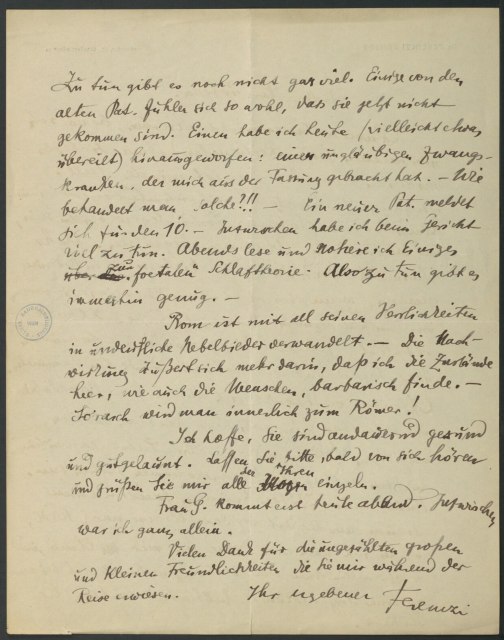 Zu tun gibt es noch nicht gar viel. Einige von den
alten Pat. fühlen sich so wohl, dass sie jetzt nicht
gekommen sind. Einen habe ich heute (vielleicht etwas
übereilt) hinausgeworfen: einen ungläubigen Zwangs-
kranken, der mich aus der Fassung gebracht hat. – Wie
behandelt man solche?!! – Ein neuer Pat. meldet
sich für den 10. – Inzwischen habe ich beim Gericht
viel zu tun. Abends lese und notiere ich Einiges
über zur foetalen Schlaftheorie. Also zu tun gibt es
immerhin genug. –
Rom ist mit all seinen Herrlichkeiten
in undeutliche Nebelbilder verwandelt. – Die Nach-
wirkung äußert sich mehr darin, daß ich die Zustände
hier, wie auch die Menschen, barbarisch finde. –
So rasch wird man innerlich zum Römer!
Ich hoffe, Sie sind andauernd gesund
und gutgelaunt. Lassen Sie, bitte, bald von sich hören
und grüßen Sie mir alle der Ihren einzeln.
Frau G. kommt erst heute abend. Inzwischen
war ich ganz allein.
Vielen Dank für die ungezählten großen
und kleinen Freundlichkeiten die Sie mir während der
Reise erwiesen. Ihr ergebener Ferenczi